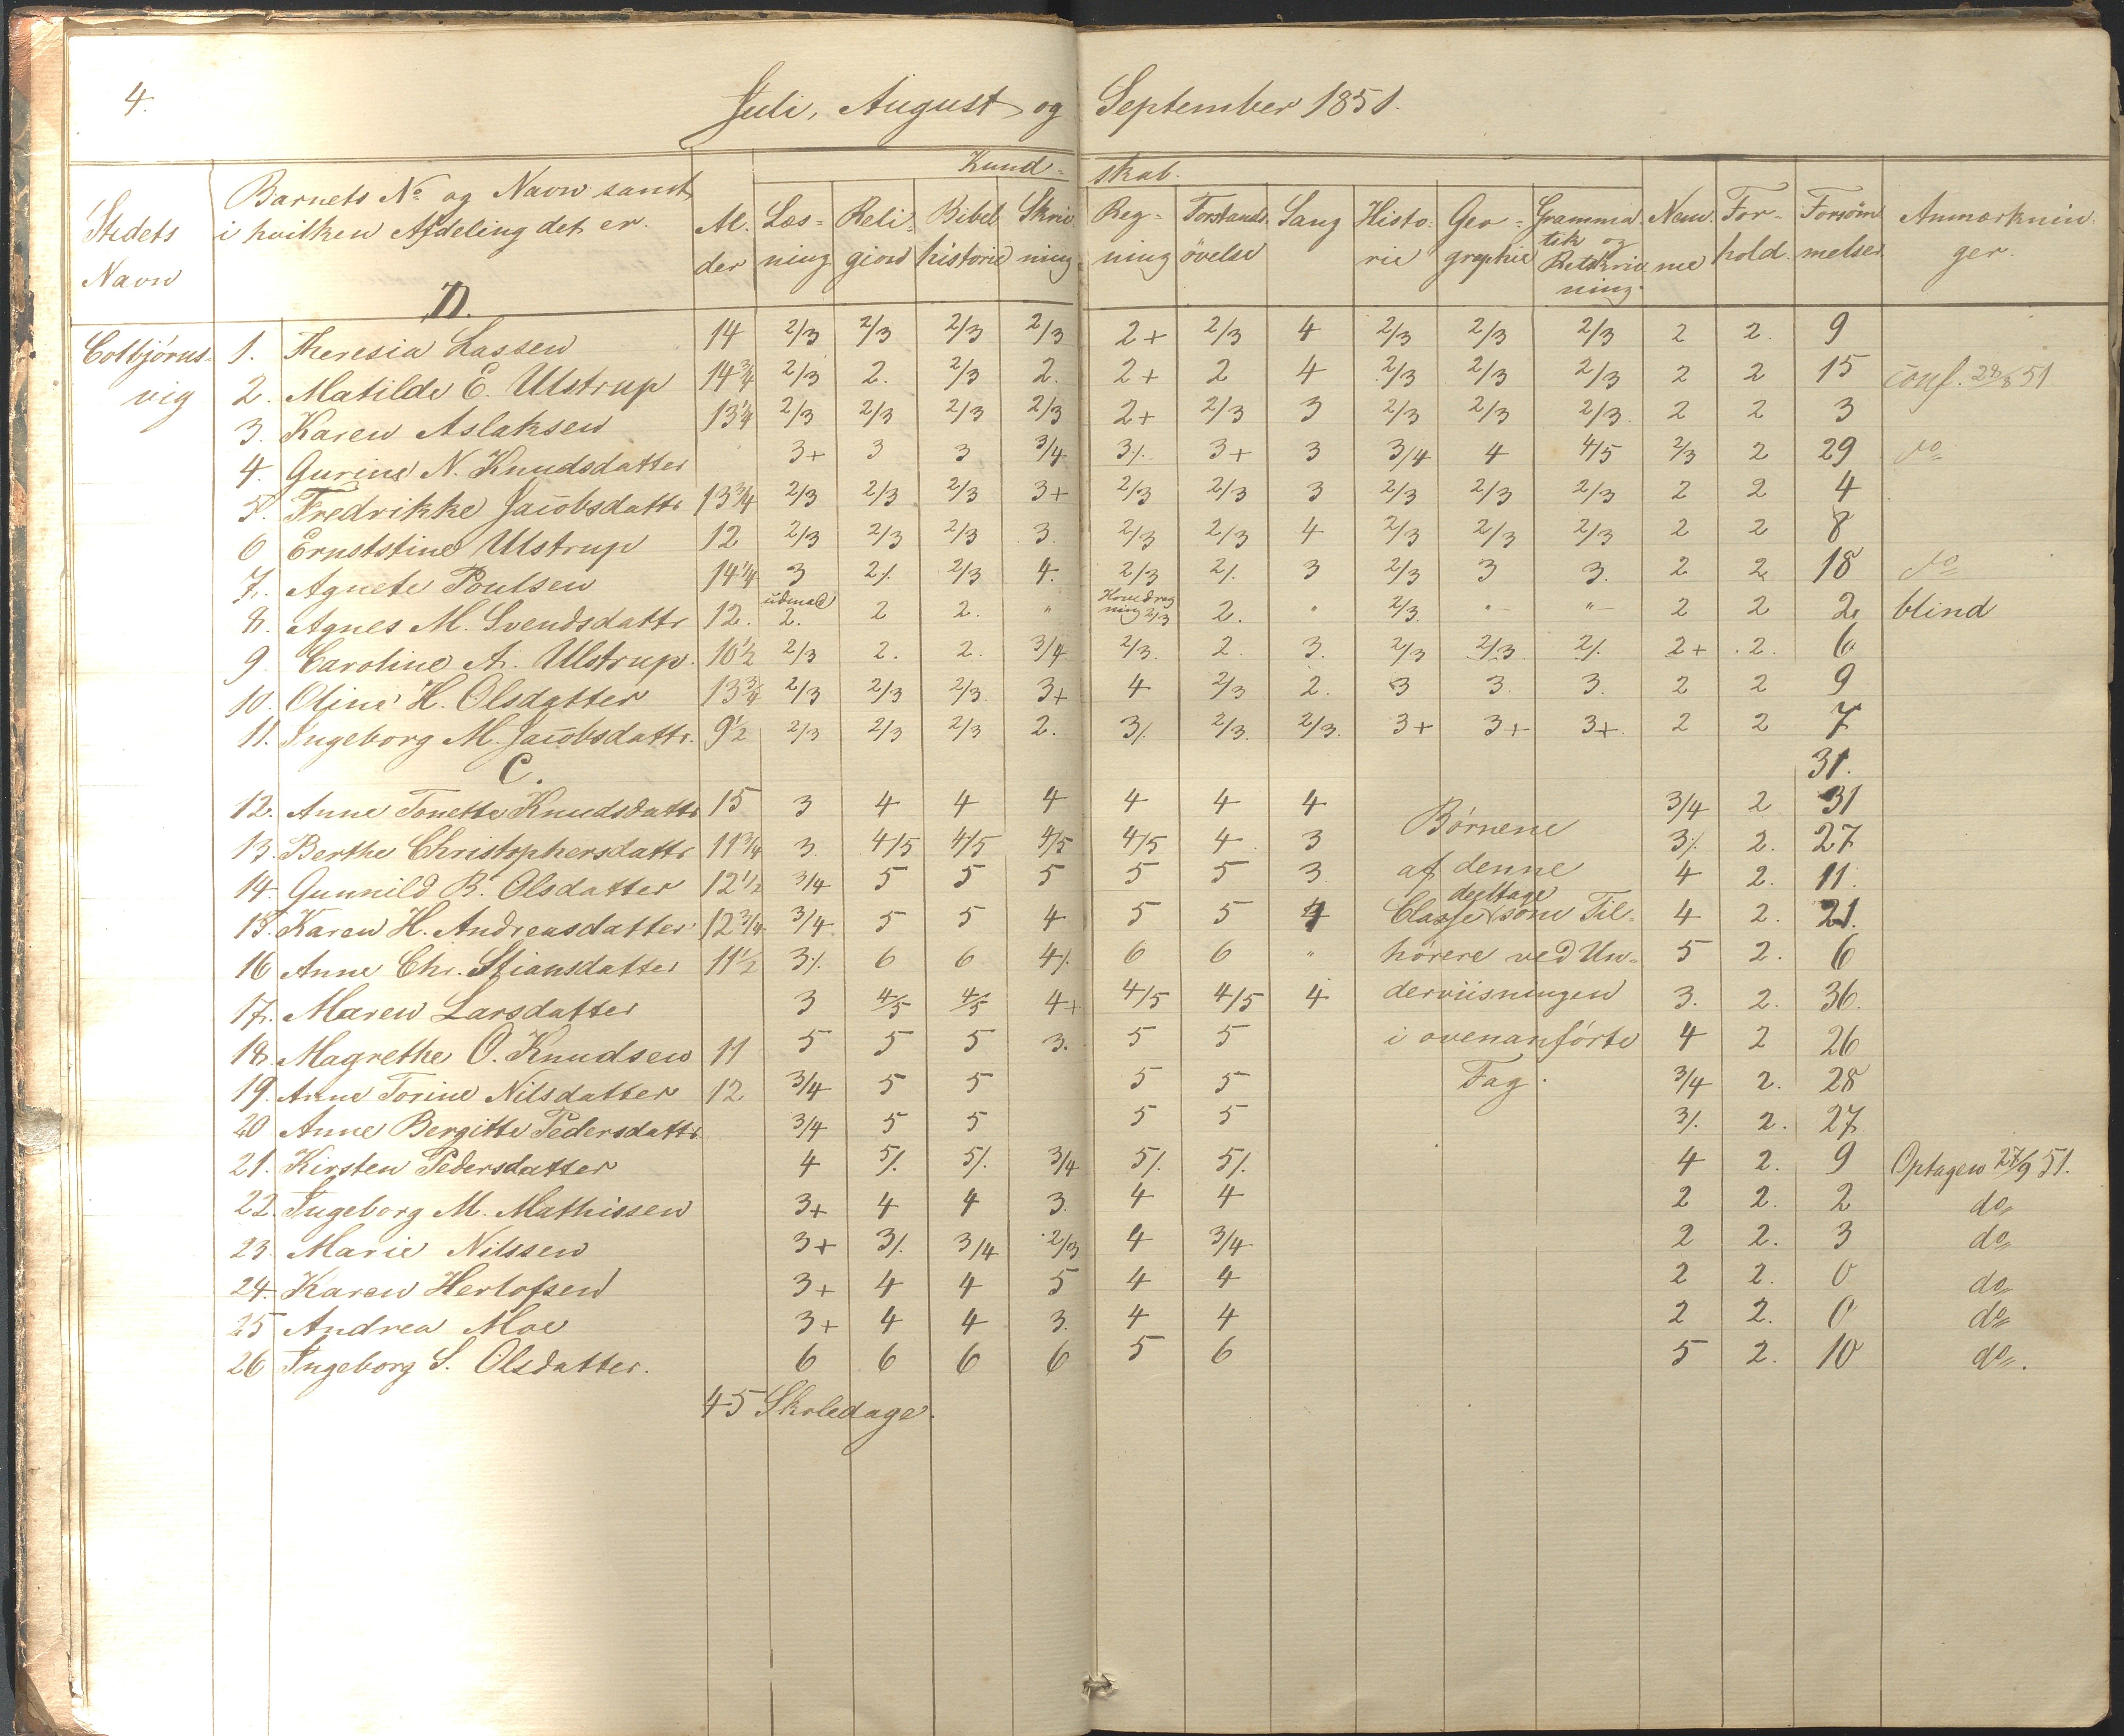 4.
Juli, August og September 1851.
Stedets Navn
Barnets No og Navn samt i hvilken Afdeling det er.
Al- der
Kund- skab.
Læs- ning
Reli- gion
Bibel historie
Skriv- ning
Reg- ning
Forstands- øvelse
Sang
Histo- rie
Geo- graphie
Gramma- tik og Retskriv- ning.
Nem- me
For- hold.
Forsøm- melser
Anmærknin- ger.
D.
Colbjørns- vig
1. Theresia Lassen 14 2/3 2/3 2/3 2/3 2+ 2/3 4 2/3 2/3 2/3 2 2. 9
2. Matilde E. Ulstrup 14 3/4 2/3 2. 2/3 2. 2+ 2 4 2/3 2/3 2/3 2 2 15 conf. 28/8 51
3. Karen Aslaksen 13 1/4 2/3 2/3 2/3 2/3 2+ 2/3 3 2/3 2/3 2/3. 2 2 3
4. Gurine N. Knudsdatter 3+ 3 3 3/4 3/. 3+ 3 3/4 4 4/5 2/3 2 29 do
5. Fredrikke Jacobsdattr 13 3/4 2/3 2/3 2/3 3+ 2/3 2/3 3 2/3 2/3 2/3 2 2 4
6 Ernststine Ulstrup 12 2/3 2/3 2/3 3. 2/3 2/3 4 2/3 2/3 2/3 2 2 8
7. Agnete Poulsen 14 1/4 3 2/. 2/3 4. 2/3 2/. 3 2/3 3 3. 2 2 18 do
8. Agnes M. Svendsdattr 12. udenad 2. 2 2. " Hovedreg ning 2/3 2. " 2/3. " " 2 2 2 blind
9. Caroline A. Ulstrup. 10 1/2 2/3 2. 2. 3/4 2/3. 2. 3. 2/3 2/3 2/. 2+ 2. 6
10. Oline H. Olsdatter 13 3/4 2/3 2/3 2/3. 3+ 4 2/3 2. 3 3. 3. 2 2 9
11. Ingeborg M. Jacobsdattr. 9 1/2 2/3 2/3 2/3 2. 3/. 2/3. 2/3. 3+ 3+ 3+. 2 2 7
C. 31.
12. Anne Tonette Knudsdattr 15 3 4 4 4 4 4 4 3/4 2 31
13. Berthe Christophersdattr 11 3/4 3. 4/5 4/5 4/5 4/5 4. 3 3/. 2. 27
14. Gunnild B. Olsdatter 12 1/2 3/4 5 5 5 5 5 3. 4 2. 11.
15. Karen H. Andreasdatter 12 3/4 3/4 5 5 4 5 5 4 4 2. 21.
16 Anne Chr. Stiansdatter 11 1/2 3/. 6 6 4/. 6 6 " 5 2. 6
17. Maren Larsdatter 3 4/5 4/5 4+ 4/5 4/5 4 3. 2. 36.
18. Magrethe O. Knudsen 11 5 5 5 3. 5 5 4 2 26
19. Anne Torine Nilsdatter 12 3/4 5 5 5 5 3/4 2. 28
20 Anne Bergitte Pedersdattr 3/4 5 5 5 5 3/. 2. 27
21. Kirsten Pedersdatter 4 5/. 5/. 3/4 5/. 5/. 4 2. 9 Optagen 27/9 51.
22. Ingeborg M. Mathissen 3+ 4 4 3. 4 4 2 2. 2 do
23. Marie Nilssen 3+ 3/. 3/4 2/3 4 3/4 2 2. 3 do
24. Karen Herlofsen 3+ 4 4 5 4 4 2 2. 0 do
25 Andrea Moe 3+ 4 4 3. 4 4 2 2. 0 do
26 Ingeborg S. Olsdatter. 6 6 6 6 5 6 5 2. 10 do.
Børnene
af denne
deeltage
Classe som Til-
hørere ved Un-
derviisningen
i ovenanførte
Fag.
45 Skoledage.